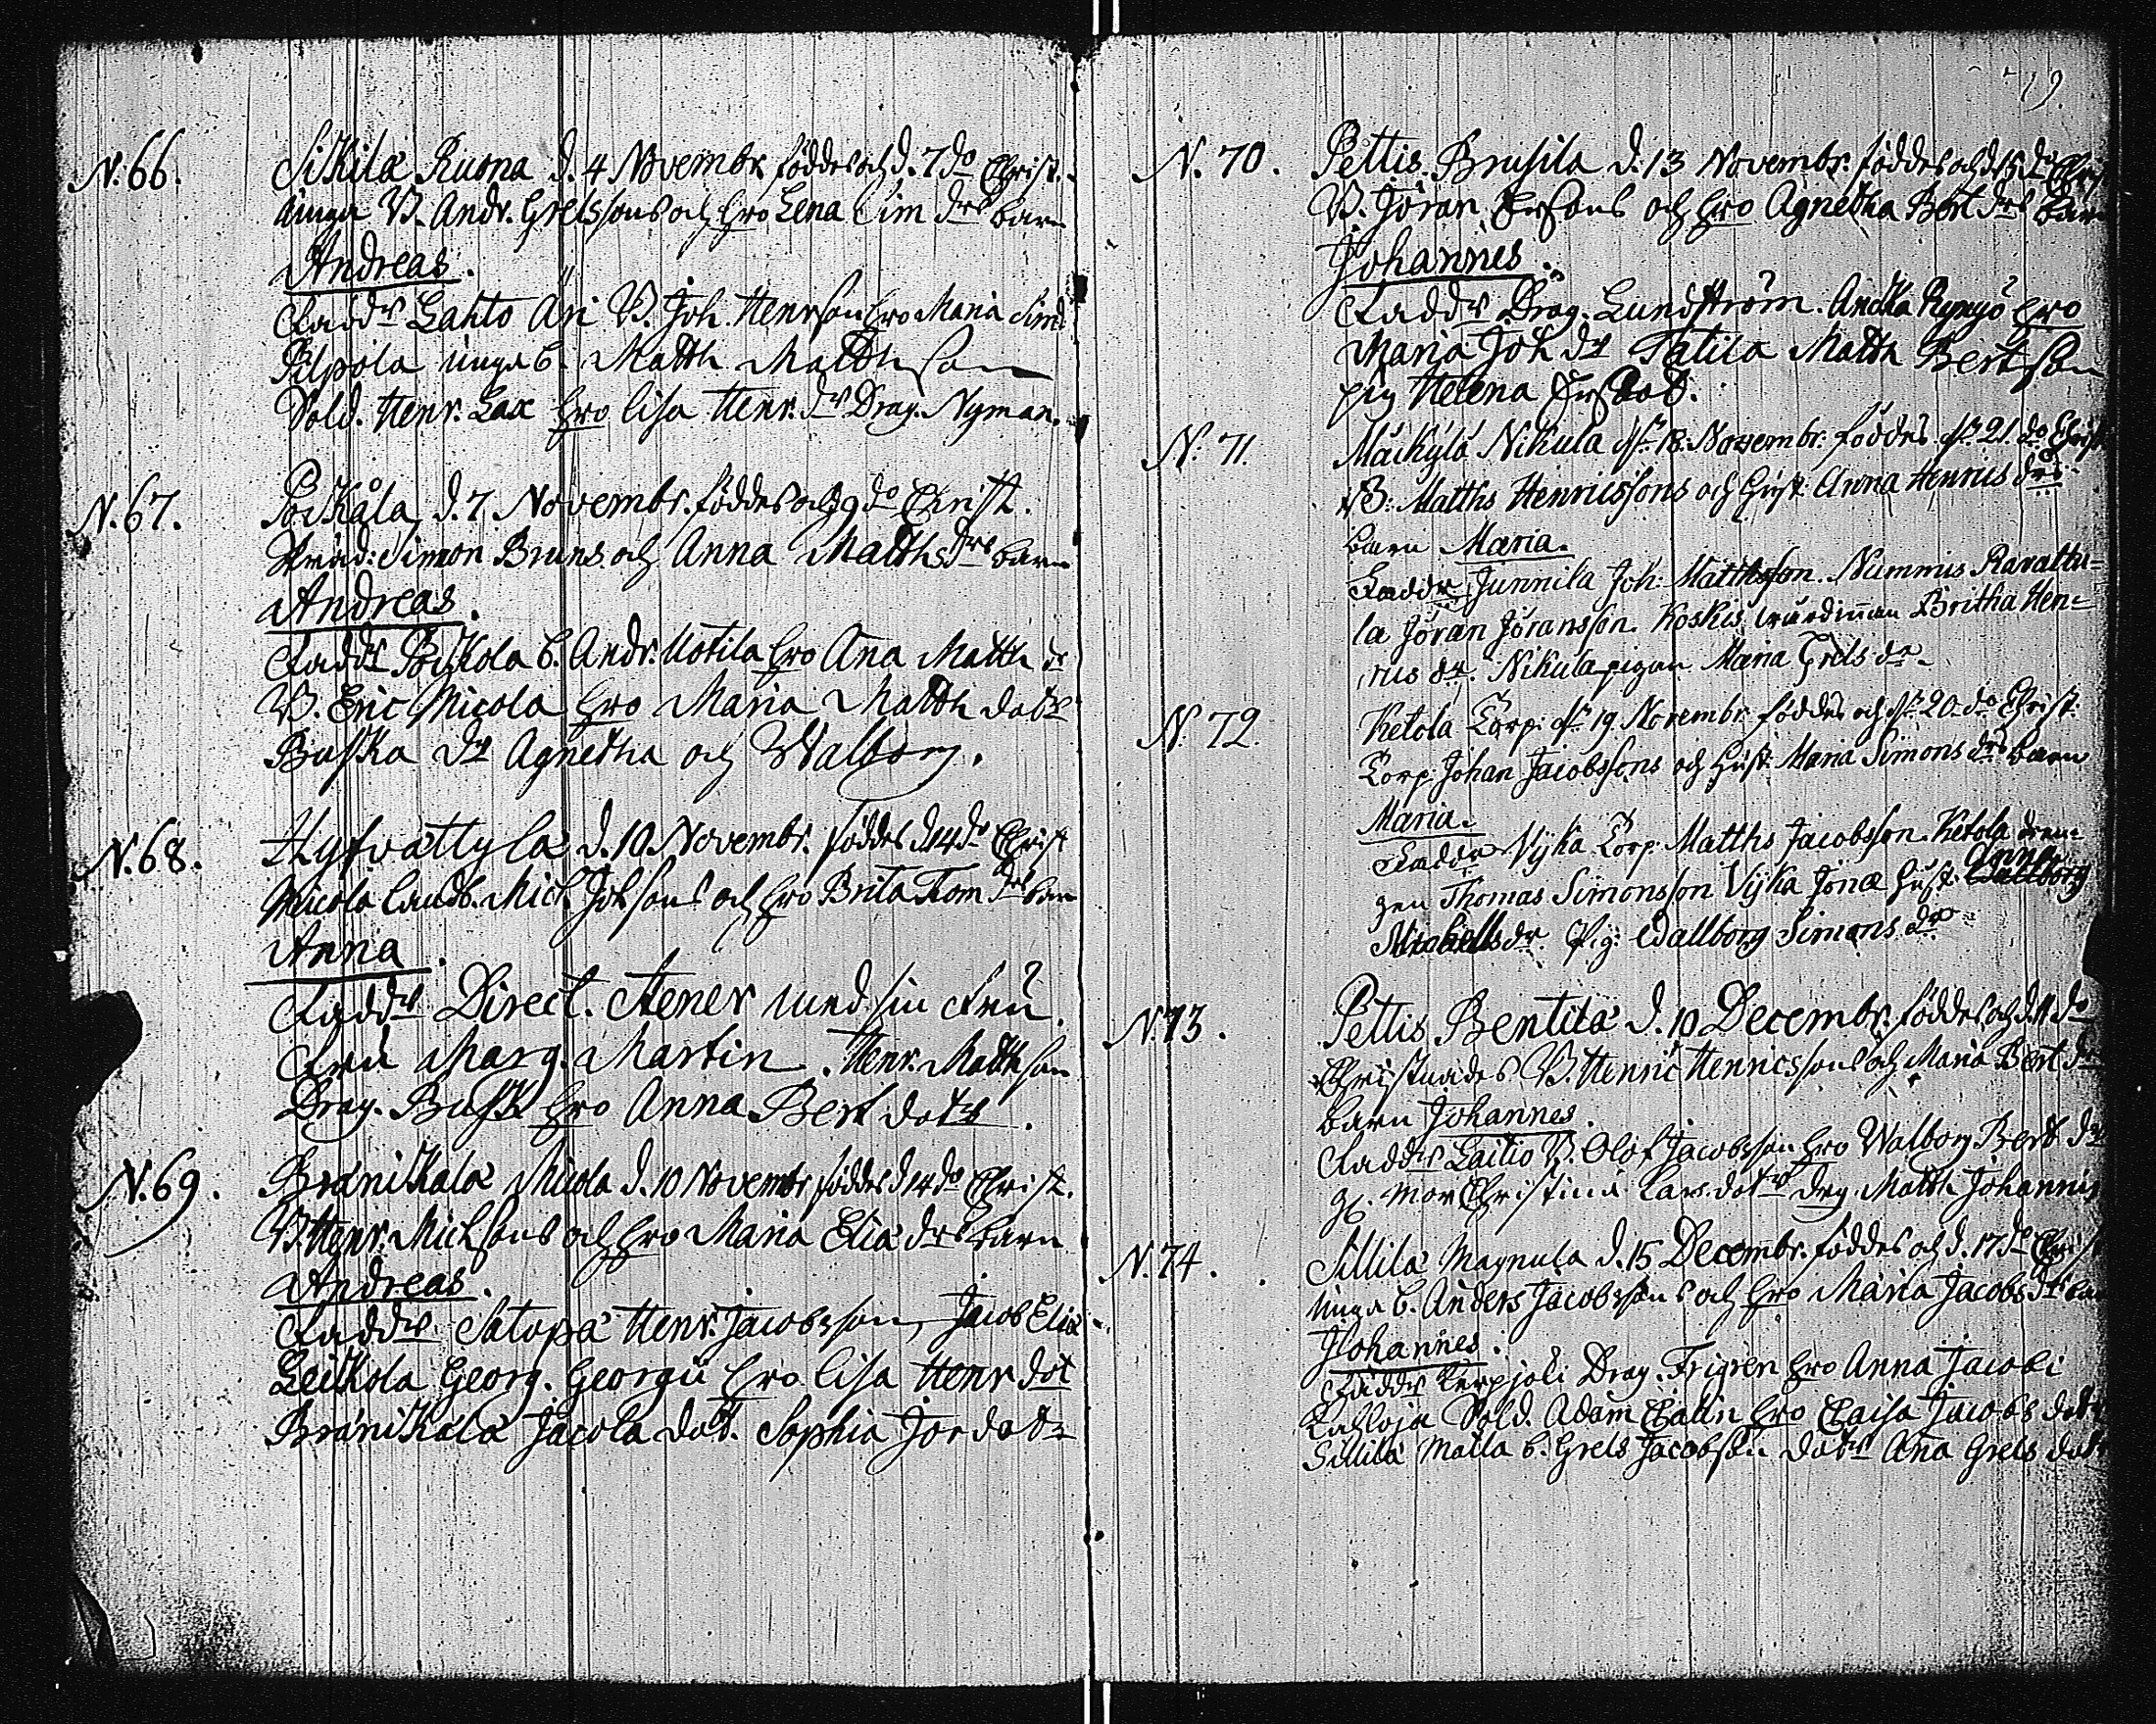 N. 66. Sikilä Ruona d. 4 Novembr. föddes och d. 7 do Christ.
unga B. Andr. Grelssons och hro Lena Sim drs barn
Andreas.
Faddr Lahto Äri B. Joh. Henrson hro Maria Sim d
Pilpola unga b. Matth Matthson
Sold. Henr. Lax hro Lisa Henr. dr Drag. Nyman.
N. 67. Poikåla d. 7 Novembr. föddes och 9 do Christ.
Simon Bruns och Anna Matths drs barn
Andreas.
Faddr Poikola b. Andr. Uotila hro Ana Matth dr
B. Eric Micola hro Maria Matth dotr
Buska dr Agnetha och Walborg.
N. 68. Hyfvättylä d. 10 Novembr. föddes d. 14 do Christ
Micola Landb. Mich. Johsons och hro Brita Tom drs barn
Anna.
Faddr Direct. Aener med sin Fru.
Fru Marg. Martin. Henr. Matthson
Drag. Busk hro Anna Bert dotr.
N. 69. Bränikala Micola d. 10 Novembr föddes d 14 do Christ.
B. Henr. Michsons och hro Maria Elia drs barn
Andreas.
Faddr Satopä Henr. Jacobsson, Jacob Elia
Leikkola Georg. Georgii hro Lisa Henr dot
Bränikala Jacola dot. Sophia Jor dotr
19.
N. 70. Pettis Brusila d. 13 Novembr. föddes och d 15 do Chri
B. Jöran Ersons och hro Agnetha Bert drs bar
Johannes.
Faddr Drag. Lundström. Andla Rynyö hro
Maria Joh dr Tatila Matth Bertson
pig Helena Ers dot.
N. 71. Mäikylä Nikula d. 18. Novembr: föddes. d. 21. do Christ
B: Matths Henricssons och Hust. Anna Henrics drs
barn Maria.
Faddr Junnila Joh: Matthsson. Nummis Ravattu=
la Jöran Jöransson. Koskis Britha Hen=
rics dr. Nikula pigan Maria Grels dr
N. 72. Ketola Torp: d. 19. Novembr. föddes och d. 20. do Christ:
Torp. Johan Jacobssons och Hust: Maria Simons drs barn
Maria.
Faddr Vijka Torp: Matths Jacobsson. Ketola dren=
gen Thomas Simonsson Vijka Jonæ Hust. Anna
Michells dr. Pig: Wallborg Simons dr
N. 73. Pettis Bentilä d. 10 Decembr. föddes och d. 11 do
Christnades B. Henric Henricssons och Maria Bert dr
barn Johannes.
Faddr Laitio B. Olof Jacobsson hro Walborg Bert dr
g. mor Christina Lars dotr drg. Matth Johannis
N. 74. Sillilä Magnula d. 15 Decembr. föddes och d. 17 do Christ
unga b. Anders Jacobssons och hro Maria Jacobs drs ba
Johannes.
Faddr Kerpjoki Drag. Frigren hro Anna Jacobi
Sold. Adam Chalin hro Chaisa Jacobs dotr
Sillilä Matla b. Grels Jacobsson dotr Ana Grels dot